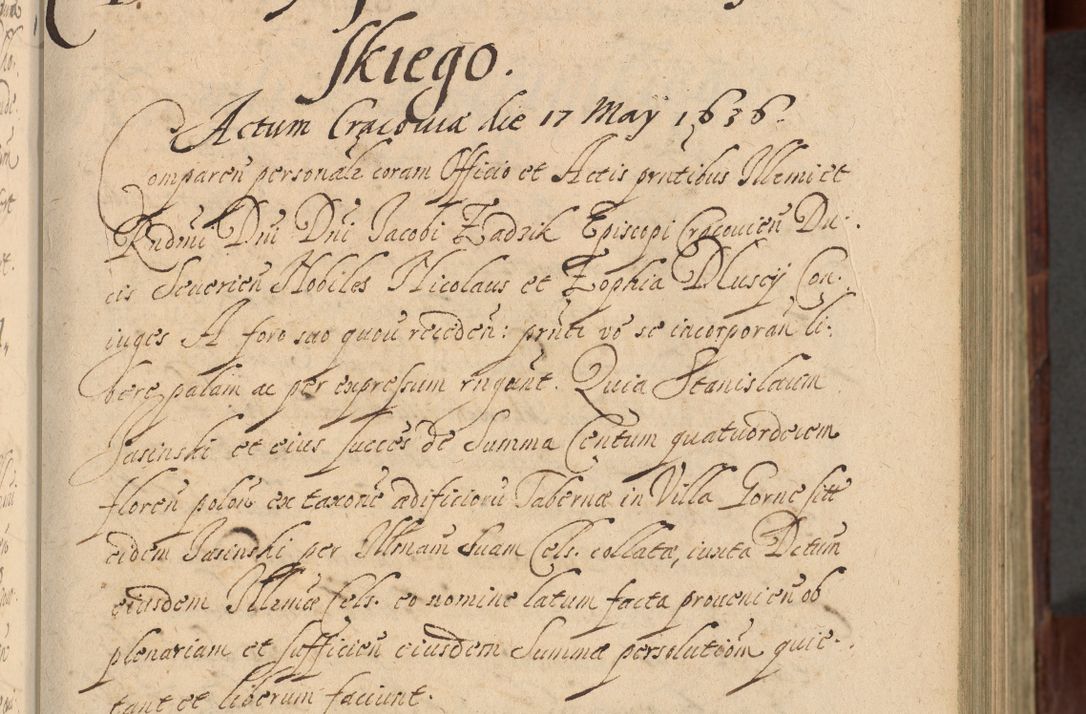 skiego.
Actum Cracoviæ die 17 May 1636.
Comparen̄ personalr̄ coram Officio et Actis prntibus Illemi et
Rndmi Dni Dni Jacobi Zadzik Episcopi Cracovien̄ Du:
cis Severien̄ Nobiles Nicolaus et Zophia Dluscÿ Con:
iuges A foro suo quou receden̄: prnti vo se incorporan̄ li:
bere palam ac per expressum rngūnt. Quia Stanislaum
Jasinski et eius succēs de Summa Centum quatuordecem
floren̄ polon̄ ex taxone ædificioru Tabernæ in Villa Gorne sitt
eidem Jasinski per Illmam Suam Cels. collatæ, iuxta Dctum
eiusdem Illemæ Cels. eo nomine latum facta provenien̄ ob
plenariam et sufficien̄ eiusdem Summæ persolutiom̄ quie:
tant et liberum faciunt.